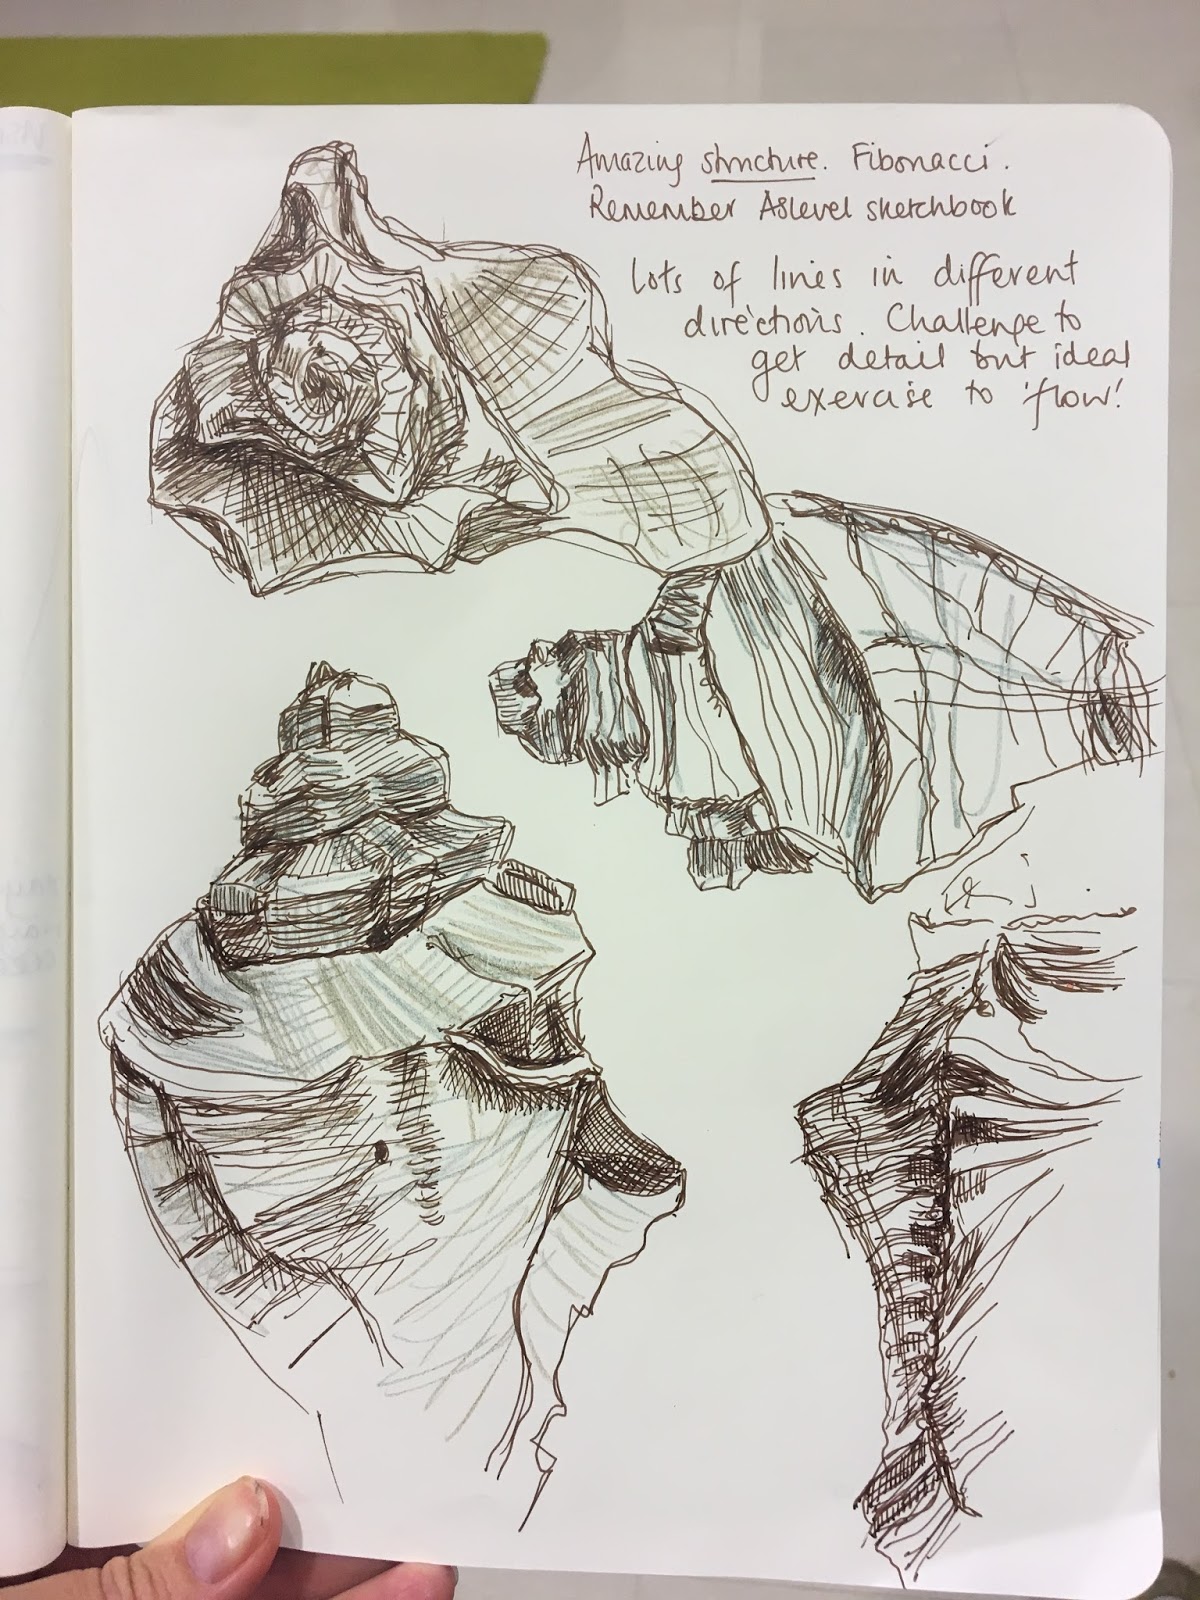 Amazing structure. Fibonacci.
Remember ASlevel sketchbook
Lots of lines in different
directions. Challenge to
get detail but ideal
exercise to 'flow'!